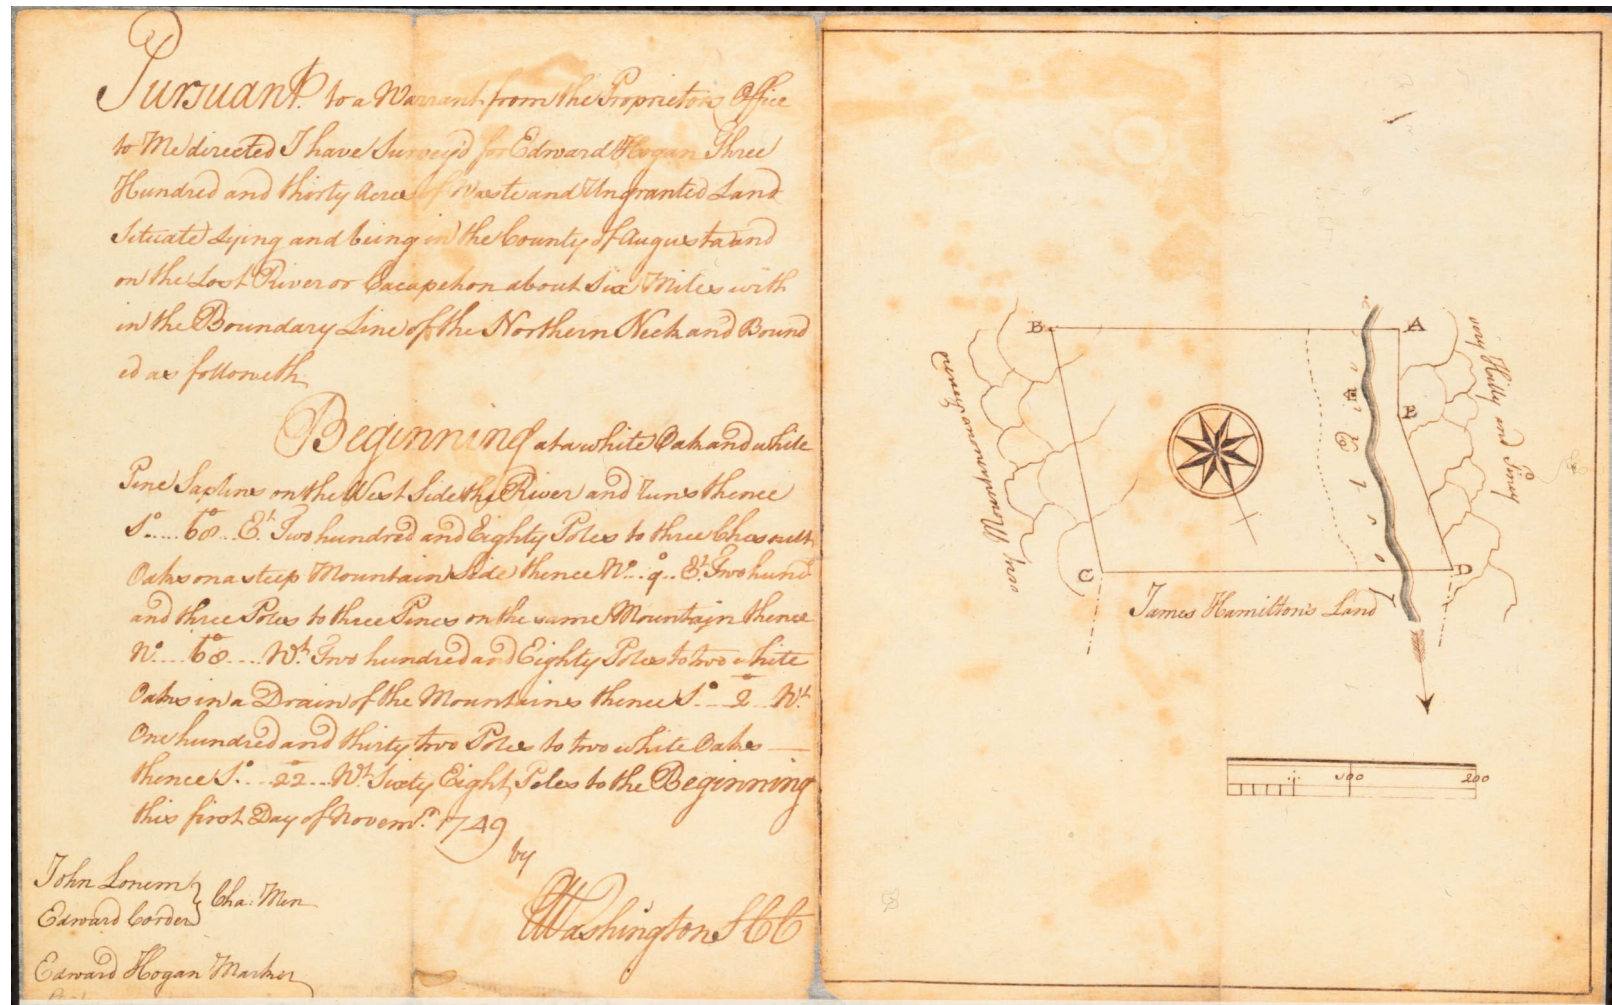 Pursuant to a Warrant from the Proprietors Office
to Me directed I have Survey'd for Edward Hogan Three
Hundred and thirty Acres of Waste and Ungranted Land
Situate Lying and being in the County of Augusta and
on the Lost River or Cacapehon about Six Miles with
in the Boundary Line of the Northern Neck and Bound
ed as followeth
Beginning at a white Oak and white
Pine Saplins on the West Side the River and runs thence
So. 68o Et. Two hundred and Eighty Poles to three Chesnutt
Oaks on a steep Mountain Side thence No. 9o Et. Two hund
and three Poles to three Pines on the same Mountain thence
No. 68o Wt. Two hundred and Eighty Poles to two white
Oaks in a Drain of the Mountains thence So. 2o Wt.
One hundred and thirty two Poles to two white Oaks
thence So. 22o Wt. Sixty Eight Poles to the Beginning
this first Day of Novemr. 1749
by
GWashington SCC
John Lonem
Edward Corder
Cha: Men
Edward Hogan Marker
B
A
E
C
D
very Hilly and Piney
Mountainous
Lost River
James Hamilton's Land
100
200